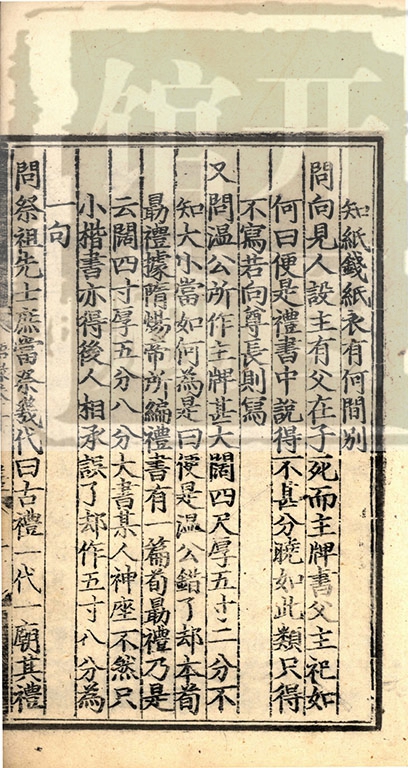 知紙錢紙衣有何間別
問向見人設主有父在子死而主牌書父主祀如
何曰便是禮書中說得不甚分曉如此類只得
不寫若向尊長則寫
又問温公所作主牌甚大闊四尺厚五寸二分不
知大小當如何為是曰便是温公錯了却本荀
勗禮據隋煬帝所編禮書有一篇荀勗禮乃是
云闊四寸厚五分八分大書某人神座不然只
小楷書亦得後人相承誤了却作五寸八分為
一句
問祭祖先士庶當祭幾代曰古禮一代一廟其禮